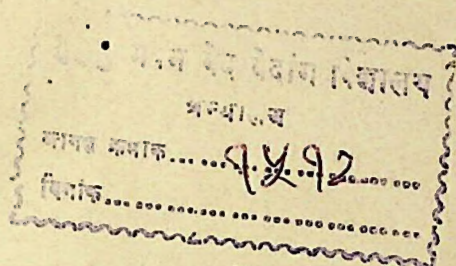 भवन वेद वेदांग विद्यालय
ग्रन्थालय
आगत क्रमांक......१५१२......
दिनांक..............................